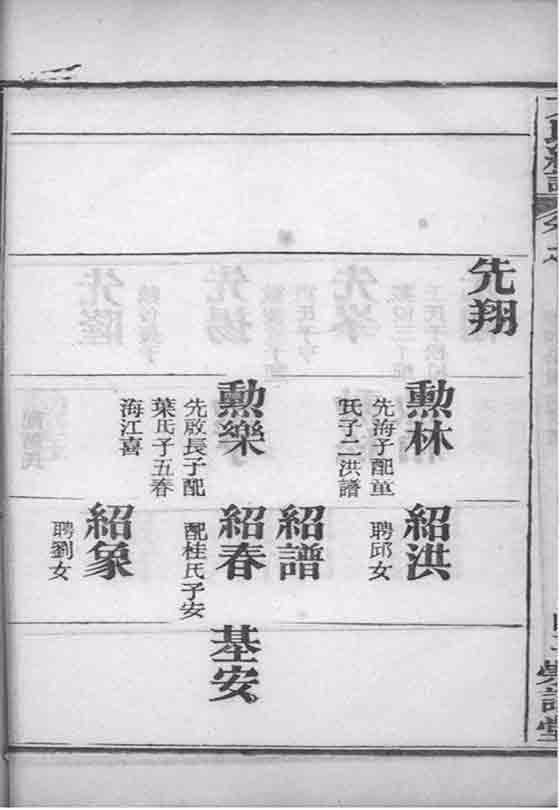 先翔
勳林
先海子配童
氏子二洪譜
勳樂
先啟長子配
葉氏子五春
海江喜
紹洪
聘邱女
紹譜
紹春
配桂氏子安
紹象
聘劉女
基安